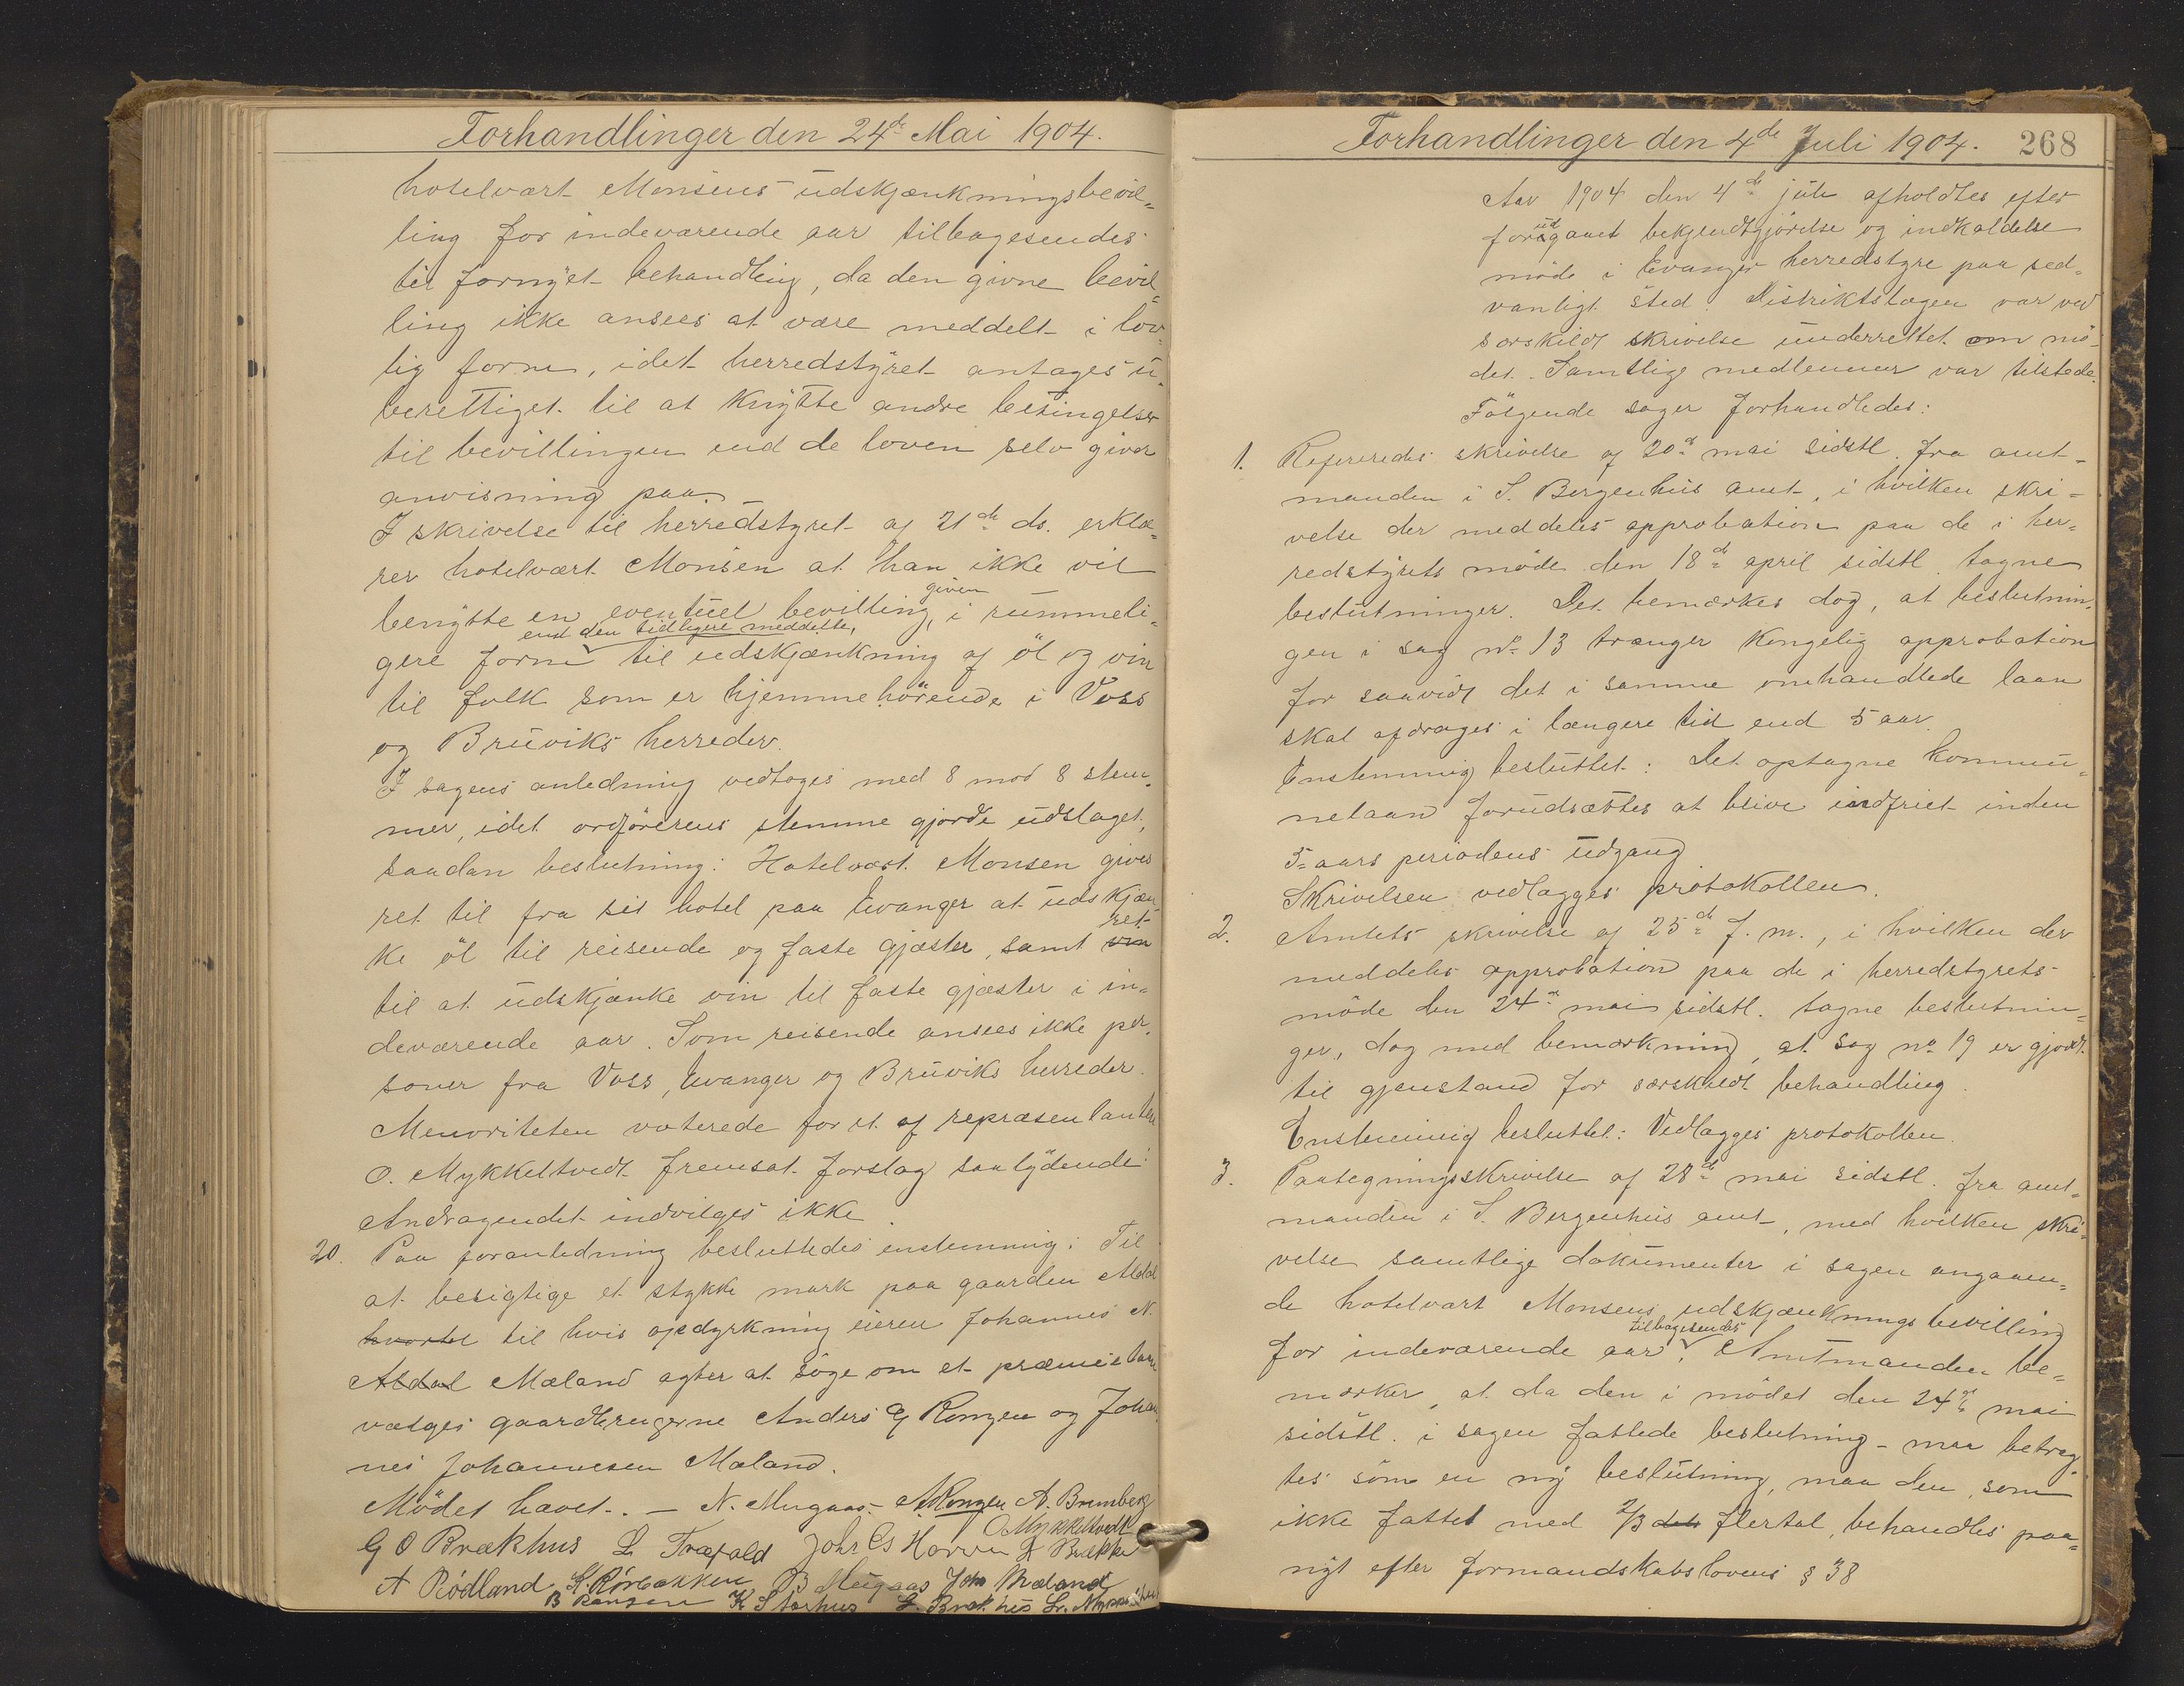 Forhandlinger den 24de Mai 1904.
hotelvært Monsens udskjænkningsbevil-
ling for indeværende aar tilbagesendes
til fornyet behandling, da den givne bevil-
ling ikke ansees at være meddelt i lov-
lig form, idet herredstyret antages u-
berettiget til at knytte andre betingelser
til bevillingen end de loven selv giver
anvisning paa. –
I skrivelse til herredstyret af 21de ds. erklæ-
rer hotelvært Monsen at han ikke vil
given
benytte en eventuel bevilling, i rummeli-
end den tidligere meddelte,
gere form til udskjænkning af öl og vin
til folk som er hjemmehörende i Voss
og Bruviks herreder.
I sagens anledning vedtoges med 8 mod 8 stem-
mer, idet ordförerens stemme gjorde udslaget,
saadan beslutning: Hotelvært Monsen gives
ret til fra sit hotel paa Evanger at udskjæn-
ret
ke öl til reisende og faste gjæster, samt vin
til at udskjænke vin til faste gjæster i in-
deværende aar. Som reisende ansees ikke per-
soner fra Voss, Evanger og Bruviks herreder.
Menoriteten voterede for et af repræsentanten
O. Mykkeltvedt fremsat forslag saalydende:
Andragendet indvilges ikke.
20. Paa foranledning besluttedes enstemmig: Til
at besigtige et stykke mark paa gaarden Aldal
hvortel til hvis opdyrkning eieren Johannes N.
Aldal Mæland agter at söge om et præmielaan
vælges gaardbrugerne Anders G Rongen og Johan-
nes Johannesen Mæland.
Mödet hævet. – N. Mugaas A Rongen A. Brunborg
O Mykkeltvedt
G O Brækhus L Træfald Johs Es Horven A Brække
A Rödland K. Rörbakken B Mugaas Joh Mæland
B Rongen K Storhus L. Brækhus
Forhandlinger den 4de Juli 1904. 268
Aar 1904 den 4de juli afholdtes efter
ud
forigaaet bekjendtgjörelse og indkaldelse
möde i Evanger herredstyre paa sed-
vanligt sted. Distriktslægen var ved
særskildt skrivelse underrettet om mö-
det. Samtlige medlemmer var tilstede.
Fölgende sager forhandledes:
1. Refereredes skrivelse af 20de mai sidstl. fra amt-
manden i S. Bergenhus amt, i hvilken skri-
velse der meddeles approbation paa de i her-
redstyrets möde den 18de april sidstl. tagne
beslutninger. Det bemærkes dog, at beslutnin-
gen i sag no 13 trænger kongelig approbation
for saavidt det i samme omhandlede laan
skal afdrages i længere tid end 5 aar.
Enstemmig besluttet: Det optagne kommu-
nelaan forudsættes at blive indfriet inden
5-aars periodens udgang.
Skrivelsen vedlægges protokollen.
2. Amtets skrivelse af 25de f. m., i hvilken der
meddeles approbation paa de i herredstyrets
möde den 24de mai sidstl. tagne beslutnin-
ger, dog med bemærkning, at sag no 19 er gjordt
til gjenstand for særskildt behandling.
Enstemmig besluttet: Vedlægges protokollen.
3. Paategningsskrivelse af 28de mai sidstl. fra amt-
manden i S. Bergenhus amt, med hvilken skri-
velse samtlige dokumenter i sagen angaaen-
de hotelvært Monsens udskjænkningsbevilling
tilbagesendes
for indeværende aar. Amtmanden be-
mærker, at da den i mödet den 24de mai
sidstl. i sagen fattede beslutning maa betrag-
tes som en ny beslutning, maa den, som
ikke fattet med 2/3 dels flertal, behandles paa-
nyt efter formandskabslovens § 38